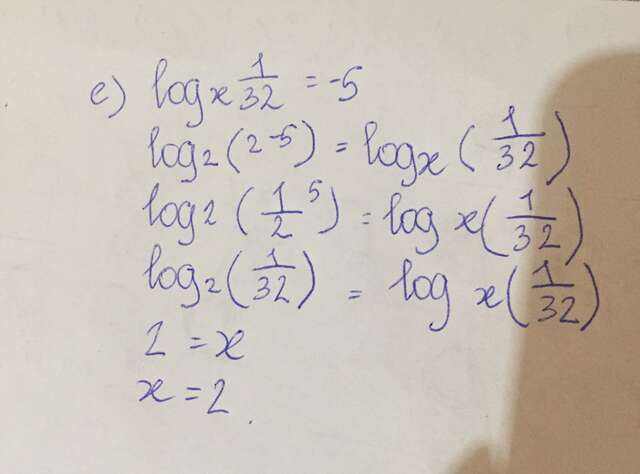 e) log x 1/32 = -5
log2(2-5) = logx(1/32)
log2(1/2 5) = log x(1/32)
log2(1/32) = log x(1/32)
2 = x
x = 2.